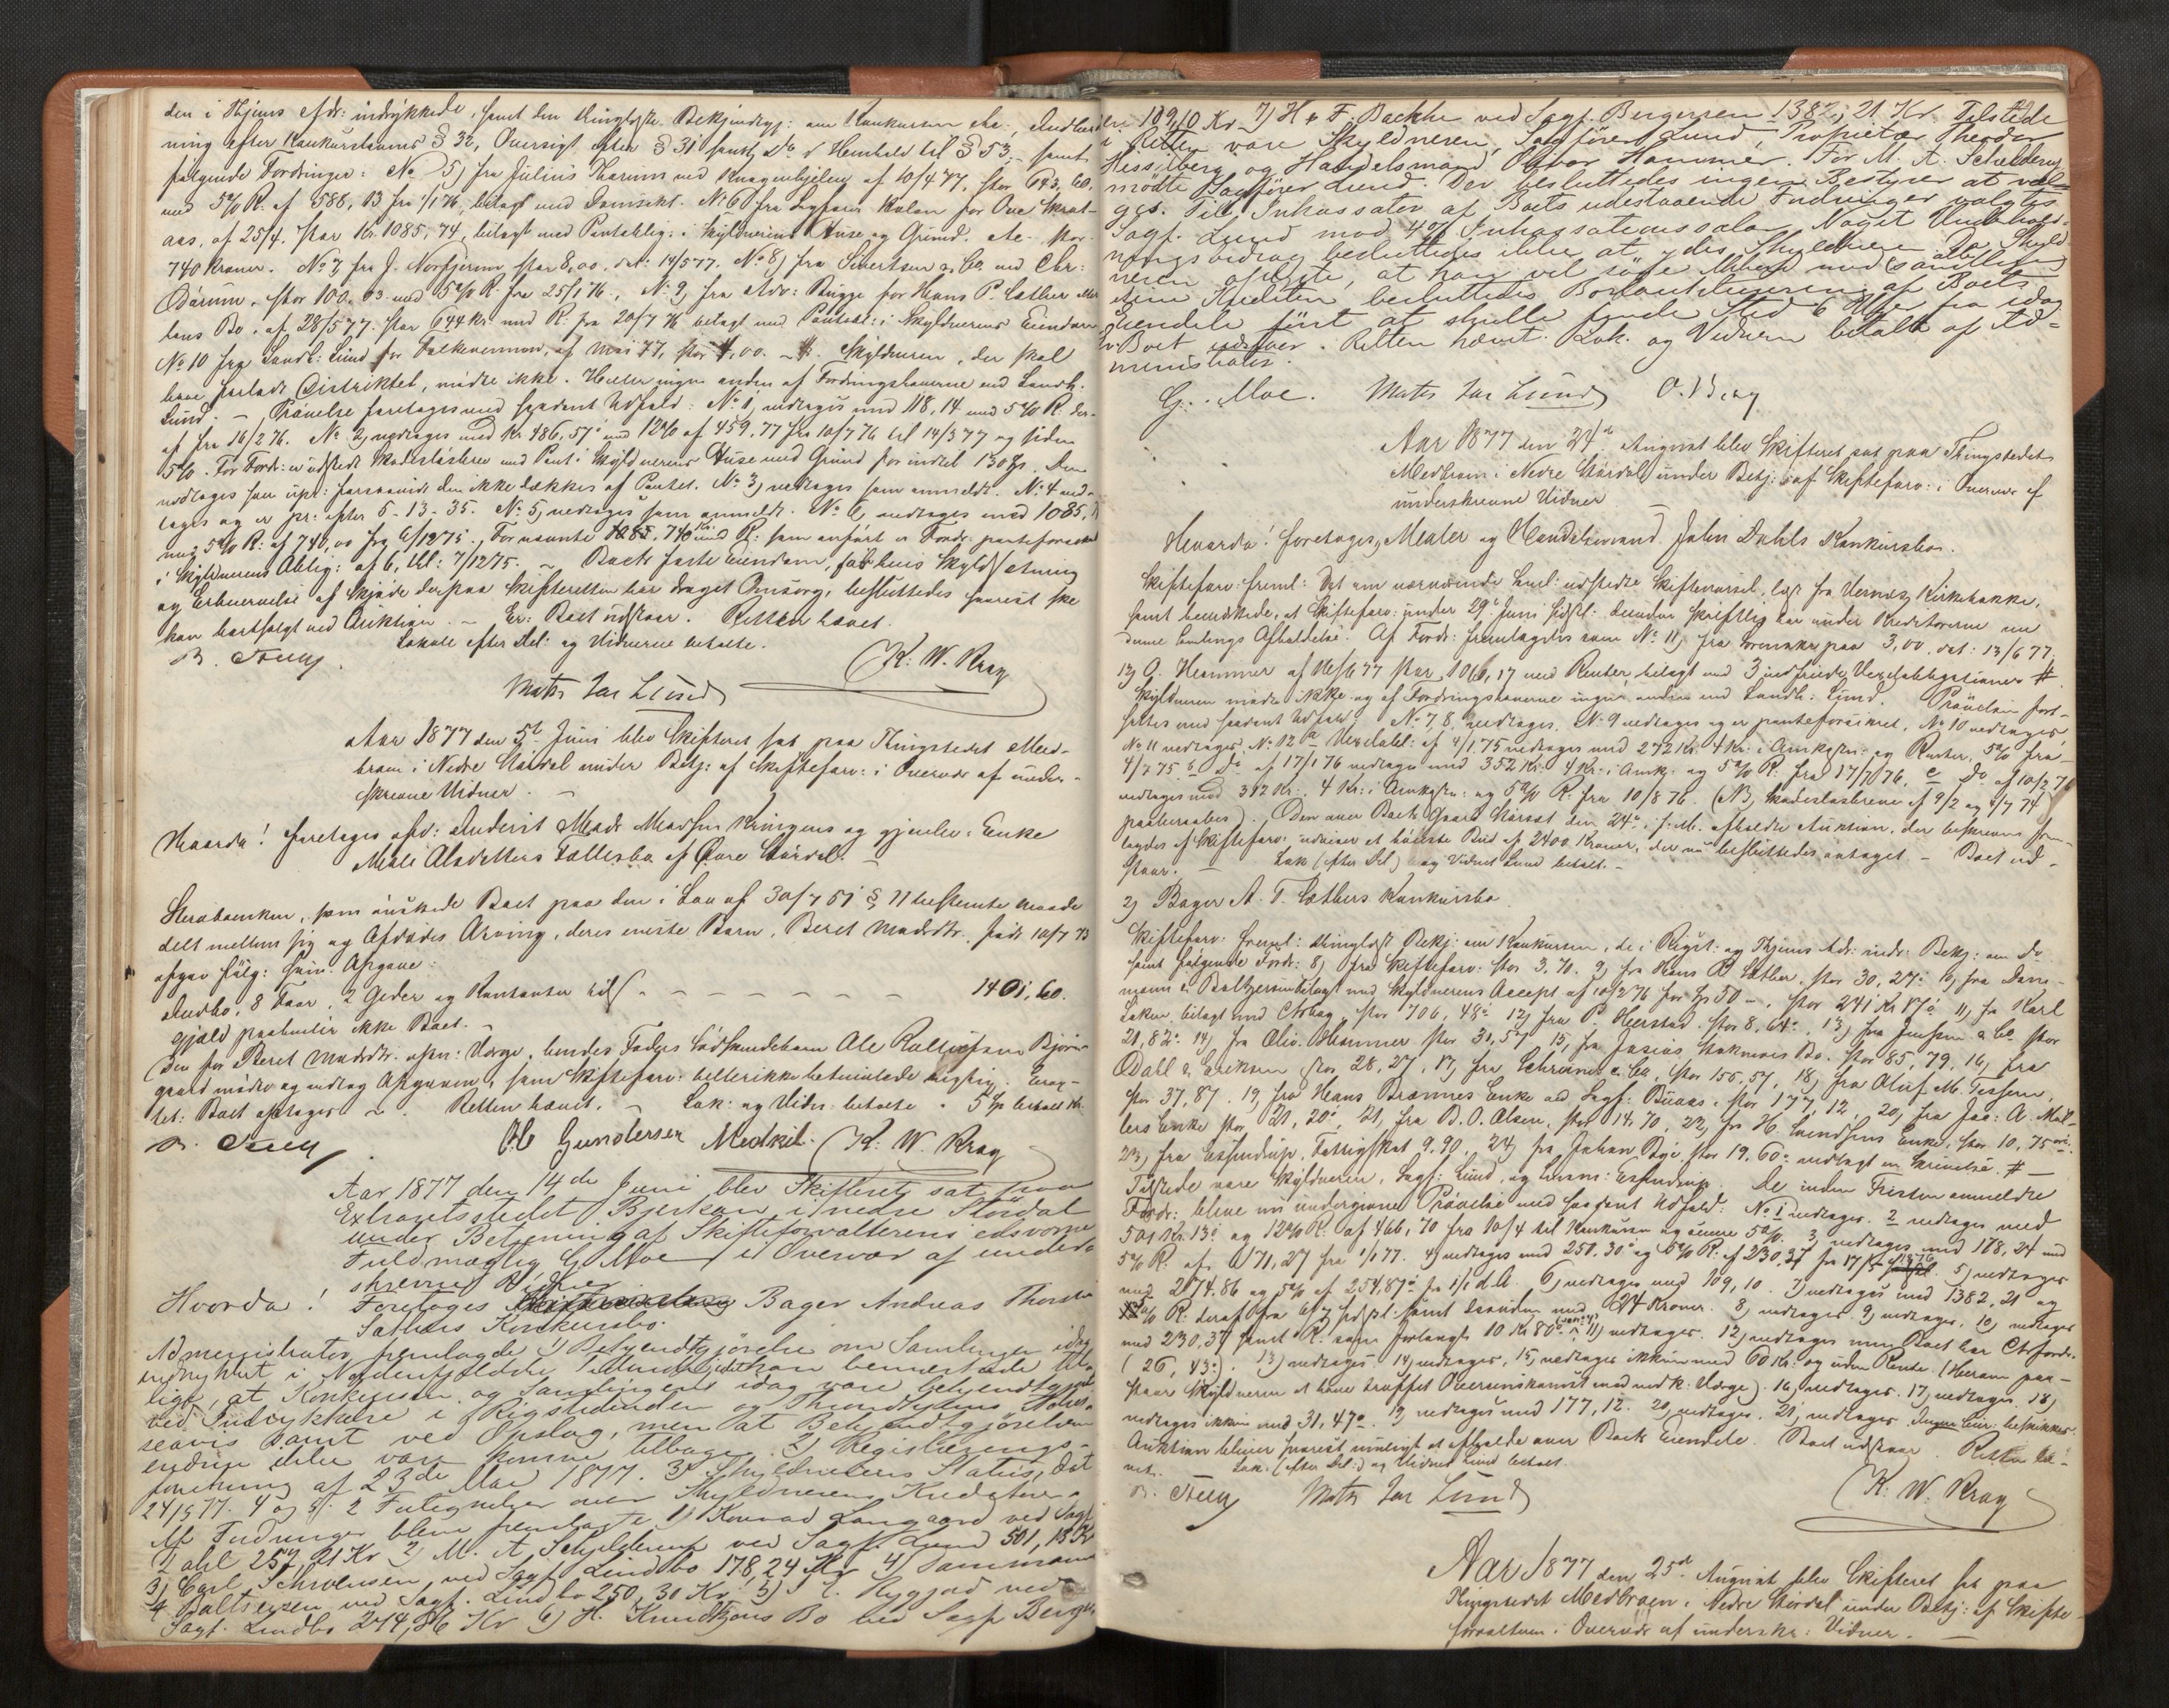 den i Thjems Adr: indrykkede, samt den thinglæste Bekjendtgj: om Konkursen
ning efter Konkurslovens § 32, Oversigt efter § 31 samt Do i Henhold til § 53, samt
følgende Fordringer: No 5) fra Julius Thaarum ved af 10/4 77, stor 643, 60.
med 5% R. af 588, 13 fra 1/1 76, belagt med No 6) fra Sagfører for Ove Skrat-
aas, af 25/4. stor Kr. 1085, 74, belagt med Pantoblig: i Skyldnerens Huse og Grund.
740 Kroner. No 7, fra J. stor 8,00, dat: 14/5 77. No 8) fra Sivertsen & Co ved Chr:
stor 100.03 med 5% R. fra 25/1 76, No 9, fra Adv: Bugge for Hans P. Sæther eller
hans Bo, af 28/5 77. stor 644 Kr med R. fra 20/7 76 belagt med Pantobl: i Skyldnerens Eiendom
No 10 fra Landh: Lund for af Mai 77, stor 4,00. Skyldneren, der skal
have forladt Distriktet, mødte ikke. Heller ingen anden af Fordringshaverne end Landh.
Lund. - Prøvelse foretages med saadant Udfald: No 1, vedtages med 118,14 med 5% R. der-
af fra 16/2 76. No 2, vedtages med Kr 486,57 med 12% af 459,77 fra 10/7 76 til 14/3 77 og siden
5%. For Fordr: er udstedt Skadesløsbrev med Pant i Skyldnerens Huse med Grund for indtil 130 Sp. Den
vedtages som upr: forsaavidt den ikke dækkes af Pantet. No 3, vedtages som anmeldt. No 4 ved-
tages og er pr: efter 5-13-35. No 5, vedtages som anmeldt. No 6, vedtages med 1085,
med 5% R: af 740,00 fra 6/12 75. For nævnte 740 Kr. med R: som anført er Fordr: panteforsikret
i Skyldnerens Oblig: af 6, thl: 7/12 75. - Boets faste Eiendom,
og Erhvervelse af Skjøde derpaa Skifteretten har draget Omsorg, besluttedes snarest ske
kan bortsolgt ved Auktion. - Er: Boet udstaar. Retten hævet.
Lokale efter Del: og Vidnerne betalte.
K. W. Krag
Mats Lar Lund
Aar 1877 den 5te Juni blev Skifteret sat paa Thingstedet Med-
braaen i Nedre Stördal under Betj: af Skifteforv: i Overvær af under-
skrevne Vidner. -
Hvorda! foretages afd: Anderit Mads Madsen Kringens og gjenlev: Enke
Male Olsdatters Fællesbo af Øvre Stördal. -
Stervboenken, som ønskede Boet paa den i Lov af 30/7 51 § 11 bestemte Maade
delt mellem sig og Afdødes Arving, deres eneste Barn, Beret Madsdtr. født 10/7 73
afgav følg: Opgave:
Indbo, 8 Faar, 2 Geder og Kontanter til - - - - - - - - 1401,60.
Gjæld paahvilir ikke Boet. -
Den for Beret Madsdtr. opn: Værge, hendes Faders Ole Bjørn-
gaard mødte og vedtog Opgaven, som Skifteforv: heller ikke betvivlede Rigtig.
tet: Boet optages - Retten hævet. - Lok: og Vidn: betalte. 5 Sp betalt
Ole Gundersen Medkil. K. W. Krag
Aar 1877 den 14de Juni blev Skifteret sat paa
Extraretsstedet Bjerkan i nedre Stördal
under Betjening af Skifteforvalterens edsvorne
Fuldmægtig G. Moe i Overvær af under-
skrevne Vidner
Hvorda! Foretages Bager Andreas Thorst.
Sæthers Konkursbo.
Administrator fremlagde 1) Bekjendtgjörelse om Samlingen idag
indrykket i Nordenfjeldske han bemærkede til-
lige, at Konkursen og Samlingens idag vare bekjendtgjort
ved Indrykkelse i Rigstidenden og Throndhjems Adres-
seavis samt ved Opslag, men at Bekjendtgjörelsen
endnu ikke var kommen tilbage. 2) Registrerings-
forretning af 23de Mai 1877. 3) Skyldnerens Status, dat
24/5 77. 4 og 5. 2 Fortegnelser over Skyldnerens Kreditorer.
Af Fordringer bleve fremlagte 1) Konrad Langaard ved Sagf.
Dahl 257,21 Kr 2) M. A. Schjelderup ved Sagf. Lund 501,13 Kr
3) Carl Schwensen ved Sagf. Lindbo 178,24 Kr 4) Dammann
& Baltsersen ved Sagf. Lindbo 250,30 Kr. 5) J. E. Rygjord ved
Sagf. Lindbo 274,86 Kr 6) H. Knudtzons Bo ved Sagf Berger-
sen 109,10 Kr 7) H & F. Bachke ved Sagf. Bergersen 1382,21 Kr. Tilstede
i Retten vare Skyldneren, Sagförer Lund, Proprietær Theodor
Hesselberg og Handelsmand Oluar Hammer. For M. A. Schjelderup
mødte Sagförer Lund. Der besluttedes ingen Bestyrer at væl-
ges. Til Inkassator af Boets udestaaende Fordringer valgtes
Sagf. Lund mod 4% Inkassationssalær. Noget Underhold-
ningsbidrag besluttedes ikke at ydes Skyldneren. Da Skyld
neren oplyste, at han vil söge Akkord med samtlige
sine Kreditorer, besluttedes Bortauktionering af Boets
Eiendele först at skulle finde Sted 6 Uger fra idag
Boet udstaar. Retten hævet. Lok. og Vidnern betalt af Ad-
ministrator.
G. Moe. Mats Lar Lund O. Krag
Aar 1877 den 24de August blev Skifteret sat paa Thingstedet
Medbraaen i Nedre Stördal under Betj: af Skifteforv: i Overvær af
underskrevne Vidner -
Hvorda! foretages, Maler og Handelsmand John Dahls Konkursbo.
Skifteforv: freml: Det om nærværende Saml: udstedte Skiftevarsel, læst fra Værnes Kirkebakke,
samt bemærkede, at Skifteforv: under 29de Juni sidstl: desuden skriftlig har under Kreditorerne om
denne Samlings Afholdelse. Af Fordr: fremlagdes som No 11) fra paa 3,00, dat: 13/6 77,
12) O. Hammer af 77 stor 1066,17 med Renter, belagt med 3 indfriede Vexelobligationer #
Skyldneren mødte ikke og af Fordringshaverne ingen anden end Landh: Lund. Prøvelsen fort-
sattes med saadant Udfald: No 7, 8, vedtages, No 9 vedtages og er panteforsikret. No 10 vedtages,
No 11 vedtages, No 12 a Vexelobl: af 4/1 75 vedtages med 272 Kr. 4 Kr. i Omkostn: og Renter, 5% fra
4/7 75 b Do af 17/1 76 vedtages med 352 Kr. 4 Kr: i Omk: og 5% R: fra 17/7 76, c Do af 10/2 76
vedtages med 312 Kr. 4 Kr: i Omkostn: og 5% R: fra 10/8 76. (NB, Skadesløsbreve af 9/2 og 4/7 74
paaberaabes). Den over Boets Gaard den 24de f: M. afholdte Auktion, der beskreven frem-
lagdes af Skifteforv: udviser et høieste Bud af 2400 Kroner, der nu besluttedes antaget. - Boet ud-
staar. Lok (efter Del) og Vidnet Lund betalt. -
2) Bager A. T. Sæthers Konkursbo.
Skifteforv: freml: thinglæst Bekj: om Konkursen, de i Rigst: og Thjems Adr: indr: Bekj: om Do
samt følgende Fordr: 8) fra Skifteforv: stor 3,70. 9) fra Hans R. Sæther, stor 30,27. 10) fra Dam-
mann & Baltzersen belagt med Skyldnerens Accept af 10/2 76 for Sp 50 -, stor 241 Kr 17 ö 11) fra Karl
belagt med stor 706,48. 12) fra P. stor 8,64. 13) fra Jenssen & Co stor
21,82. 14) fra Oliv. Hammer stor 31,57 15, fra Bo. stor 85,79, 16, fra
Dahl & Eriksen stor 28,27, 17) fra Schreiner & Co, stor 155,57, 18) fra Oluf M. Tessem,
stor 37,87. 19) fra Hans Brænnes Enke ved Sagf: Buaas, stor 177,12, 20) fra Jac: A. Møl-
lers Enke stor 21,20, 21, fra B. O. Olsen, stor 14,70, 22, fra H. Svendsens Enke, stor 10,75 ö.
23) fra Fattigskat 9,90, 24) fra Johan Bye stor 19,60 vedlagt en Skrivelse. # -
Tilstede vare Skyldneren, Sagf: Lund, og De inden Fristen anmeldte
Fordr: bleve nu undergivne Prøvelse med saadant Udfald: No 1 vedtages. 2 vedtages med
501 Kr. 13 ö og 12% R. af 466,70 fra 10/4 til Konkursen og senere 5%. 3, vedtages med 178,24 med
5% R. af 171,27 fra 1/1 77. 4) vedtages med 250,30 og 5% R. af 230,37 fra 17/5 1876. 5) vedtages
med 274,86 og 5% af 254,87 fra 1/1 d.A. 6) vedtages med 109,10. 7) vedtages med 1382,21 og
5% R. deraf fra sidstl: samt desuden med 24 Kroner. 8) vedtages. 9, vedtages. 10, vedtages
med 230,37 samt R. som forlangt 10 Kr 80. 11) vedtages. 12) vedtages men Boet har
(26,43). 13) vedtages. 14) vedtages. 15, vedtages ikkun med 60 Kr. og uden Rente. (Herom paa-
staar Skyldneren at have truffet Overenskomst med vedk: Værge). 16, vedtages. 17, vedtages. 18)
vedtages ikkun med 31,47. 19, vedtages med 177,12. 20, vedtages. 21) vedtages.
Auktion bliver snarest muligt at afholde over Boets Eiendele. Boet udstaar. Retten hæ-
vet. Lok. (efter Del:) og Vidnet Lund betalt.
Mats Lar Lund K. W. Krag
Aar 1877 den 25de August blev Skifteret sat paa
Thingstedet Medbraaen i Nedre Stördal under Betj: af Skifte-
forvalteren i Overvær af underskr: Vidner. -